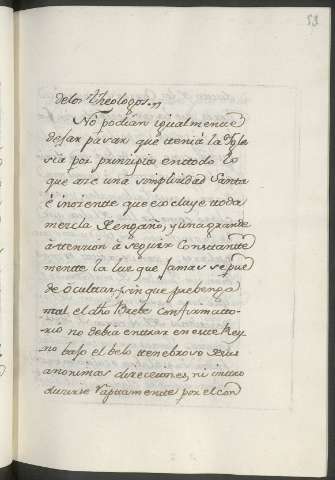 53
delos theologos.
No podian igualmente
dejar pasar que tenia la Ygle
sia por prinzipio en todo lo
que ai una simplicidad Santa
è inocente que excluye toda
mezcla de engaño, y una grande
attenzion à seguir Constante
mente la luz que Jamas se pue
de Ocultar, sin que prebenga
tal el dho Brebe confirmato
rio no debia entrar en este Rey
no bajo el belo tenebroso de sus
anonimas direcciones, ni intro
ducirse raptamente por el con